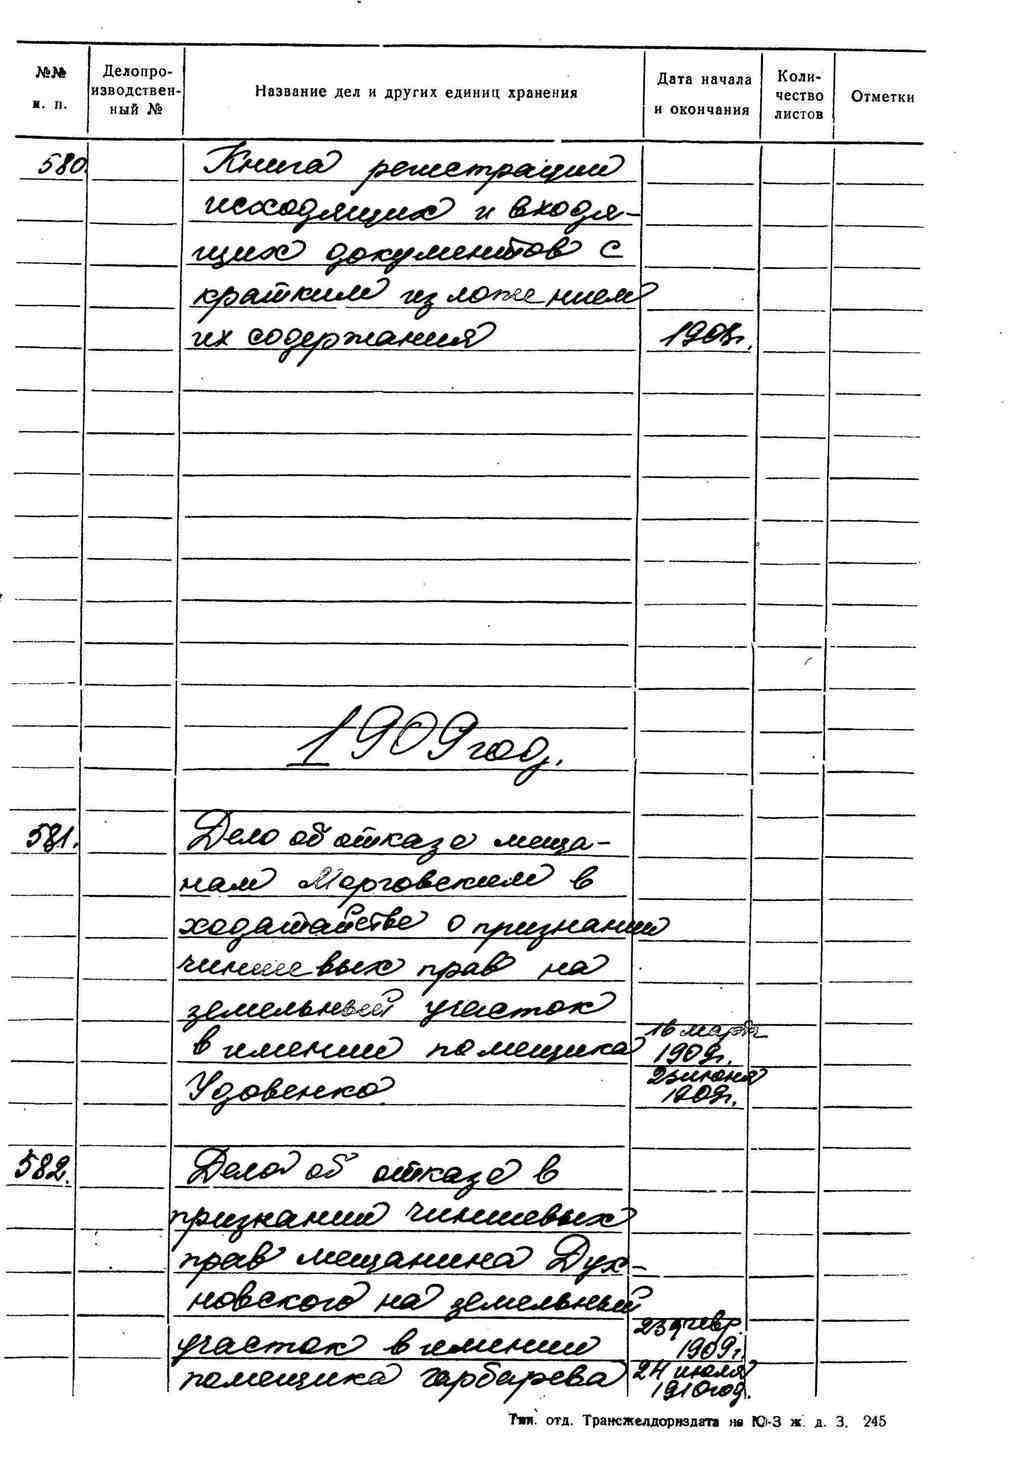 №№ и. п. Делопроизводственный № Название дел и других единиц хранения Дата начала и окончания Количество листов Отметки
580. Книга регистрации
исходящих и входя-
щих документов с
кратким изложением
их содержания 1908г.
1909 год.
581. Дело об отказе меща-
нам Марговским в
ходатайстве о признании
чиншевых прав на
земельный участок
16 марта
в имении помещика 1909г.
23 июня
Удовенко 1909г.
582. Дело об отказе в
признании чиншевых
прав мещанина Дух-
новского на земельный
23 февр.
участок в имении 1909г.
24 июля
помещика Гарбарева 1910год.
Тип. отд. Трансжелдориздата на Ю-З ж. д. З. 245